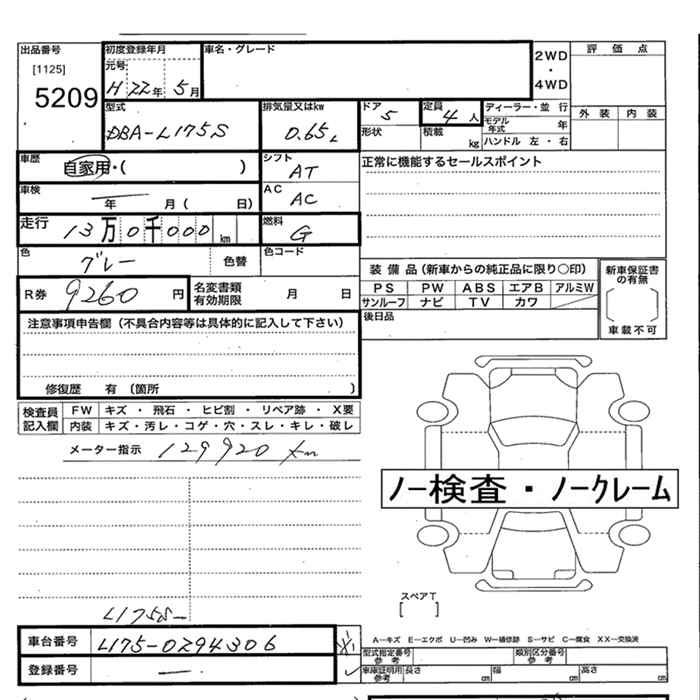 出品番号
[1125]
5209
初度登録年月
元号
H 22年 5月
車名・グレード
2WD
・
4WD
評価点
外装 内装
型式
DBA-L175S
排気量又はkw
0.65L
ドア
5
形状
定員
4人
積載
kg
ディーラー・並行
モデル年式 年
ハンドル 左・右
車歴
自家用・( )
シフト
AT
正常に機能するセールスポイント
車検
— 年 月( 日)
AC
AC
走行
13万0千000km
燃料
G
色
グレー
色替
色コード
R券 9260円
名変書類
有効期限 月 日
装備品(新車からの純正品に限り〇印)
PS PW ABS エアB アルミW
サンルーフ ナビ TV カワ
新車保証書
の有無
車載不可
後日品
注意事項申告欄(不具合内容等は具体的に記入して下さい)
修復歴 有(箇所 )
検査員
記入欄
FW キズ・飛石・ヒビ割・リペア跡・X要
内装 キズ・汚レ・コゲ・穴・スレ・キレ・破レ
メーター指示 129920 km
ノー検査・ノークレーム
スペアT
[ ]
L175S-
車台番号 L175-0294306
登録番号 —
A-キズ E-エクボ U-凹み W-補修跡 S-サビ C-腐食 XX-交換済
型式指定番号
参考
類別区分番号
参考
車庫証明用
参考
長さ cm 幅 cm 高さ cm